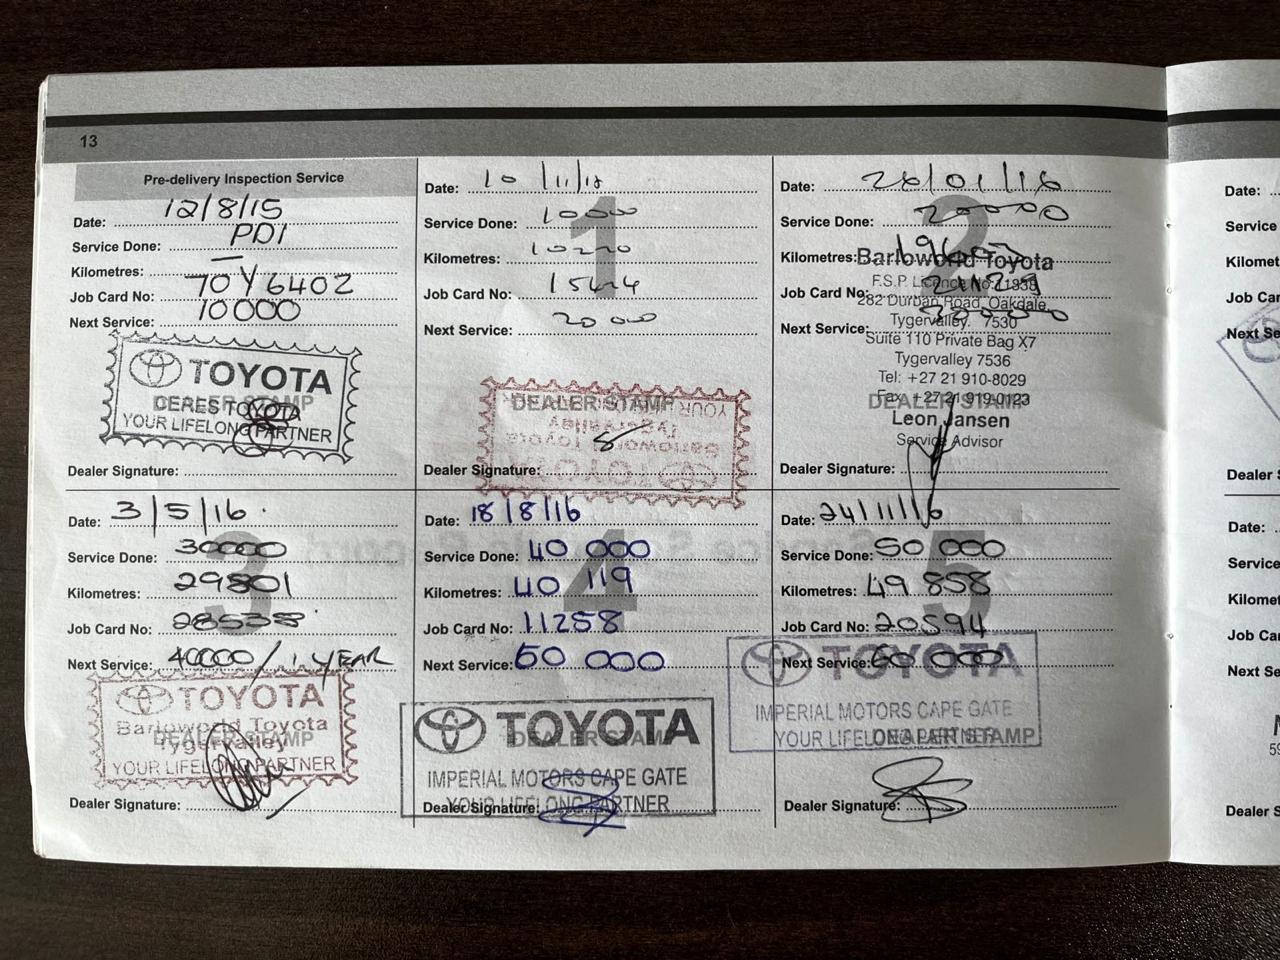 13
Pre-delivery Inspection Service
Date: 12/8/15
Service Done: PDI
Kilometres: —
Job Card No: 70Y6402
Next Service: 10000
TOYOTA
CERES TOYOTA
DEALER STAMP
YOUR LIFELONG PARTNER
Dealer Signature:
1
Date: 10/11/15
Service Done: 10000
Kilometres: 10220
Job Card No:
Next Service: 20000
DEALER STAMP
Barloworld Toyota
Tygervalley
TOYOTA
Dealer Signature:
2
Date: 26/01/16
Service Done: 20000
Kilometres:
Job Card No:
Next Service: 30000
Barloworld Toyota
F.S.P. Licence No. 11938
282 Durban Road, Oakdale,
Tygervalley. 7530
Suite 110 Private Bag X7
Tygervalley 7536
Tel: +27 21 910-8029
Fax: +27 21 919-0123
DEALER STAMP
Leon Jansen
Service Advisor
Dealer Signature:
3
Date: 3/5/16
Service Done: 30000
Kilometres: 29801
Job Card No: 28538
Next Service: 40000/1 YEAR
TOYOTA
Barloworld Toyota
DEALER STAMP
Tygervalley
YOUR LIFELONG PARTNER
Dealer Signature:
4
Date: 18/8/16
Service Done: 40 000
Kilometres: 40 119
Job Card No: 11258
Next Service: 50 000
TOYOTA
DEALER STAMP
IMPERIAL MOTORS CAPE GATE
YOUR LIFELONG PARTNER
Dealer Signature:
5
Date: 24/11/16
Service Done: 50 000
Kilometres: 49 858
Job Card No: 20594
Next Service: 60 000
TOYOTA
IMPERIAL MOTORS CAPE GATE
YOUR LIFELONG PARTNER
DEALER STAMP
Dealer Signature:
Date:
Service
Job Ca
Next Se
Dealer S
Date:
Service
Kilomet
Job Ca
Next Se
Dealer S